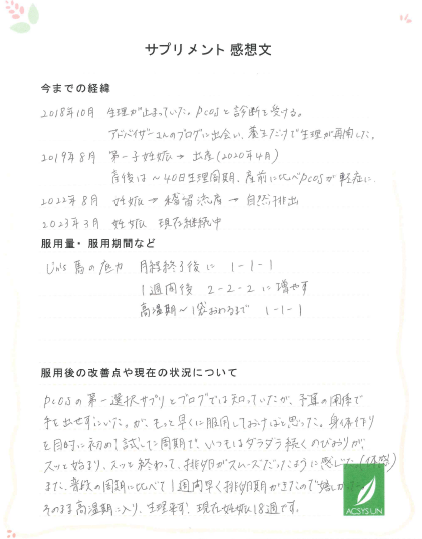 サプリメント 感想文
今までの経緯
2018年10月 生理が止まっていた。PCOSと診断を受ける。
アドバイザーさんのブログに出会い、養生だけで生理が再開した。
2019年8月 第一子妊娠→出産(2020年4月)
産後は~40日生理周期、産前に比べPCOSが軽症に
2022年8月 妊娠→稽留流産→自然排出
2023年3月 妊娠 現在継続中
服用量・服用期間など
Un's 馬の底力 月経終了後に 1-1-1
1週間後 2-2-2 に増やす
高温期~1袋おわるまで 1-1-1
服用後の改善点や現在の状況について
PCOSの第一選択サプリとブログでは知っていたが、予算の関係で
手を出せずにいた。が、もっと早くに服用しておけばと思った。身体作り
を目的に初めて試した周期で、いつもはダラダラ続くのびおりが
スッと始まり、スッと終わって、排卵がスムーズだったように感じた(体感)
また、普段の周期に比べて1週間早く排卵期がきたので嬉し
そのまま高温期に入り、生理来ず、現在妊娠18週です。
ACSYSUN